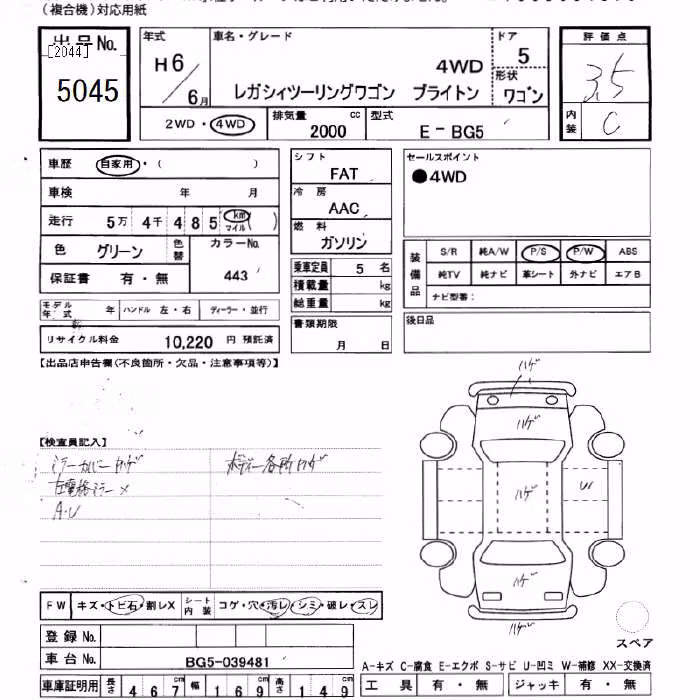 (複合機)対応用紙
出品No.
[2044]
5045
年式
H6/6月
車名・グレード
4WD
レガシィツーリングワゴン ブライトン
ドア
5
形状
ワゴン
評価点
3.5
内装
C
2WD・4WD
排気量 2000 cc
型式 E-BG5
車歴 自家用・( )
車検 年 月
走行 5万 4千 4 8 5 km マイル ( )
色 グリーン 色替
カラーNo. 443
保証書 有・無
モデル年式 年 ハンドル 左・右 ディーラー・並行
リサイクル料金 10,220 円 預託済
シフト
FAT
冷房
AAC
燃料
ガソリン
乗車定員 5 名
積載量 kg
総重量 kg
書類期限
月 日
セールスポイント
●4WD
装備品
S/R 純A/W P/S P/W ABS
純TV 純ナビ 革シート 外ナビ エアB
ナビ型番:
後日品
【出品店申告欄(不良箇所・欠品・注意事項等)】
【検査員記入】
ミラーカバーハゲ
ボディー各所ハゲ
A・U
ハゲ
ハゲ
ハゲ
U
ハゲ
ハゲ
FW キズ・トビ石・割レX
シート内装 コゲ・穴・汚レ・シミ・破レ・スレ
登録No.
車台No. BG5-039481
スペア
A-キズ C-腐食 E-エクボ S-サビ U-凹ミ W-補修 XX-交換済
車庫証明用 長さ 467 cm 幅 169 cm 高さ 149 cm
工具 有・無 ジャッキ 有・無